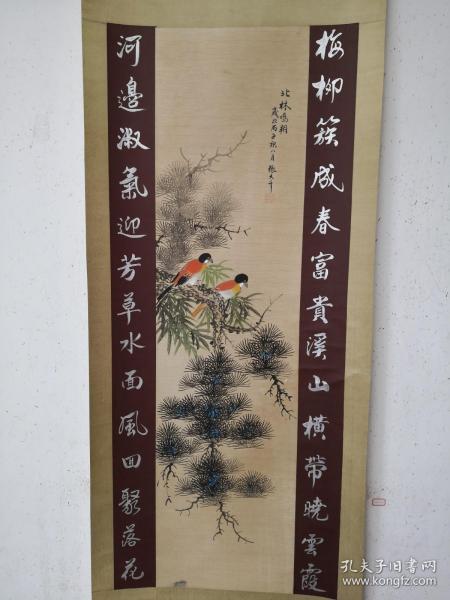 梅柳簇成春富貴溪山橫帶曉雲霞
北林鳴翔
歲次丙子秋八月張大千
河邊淑氣迎芳草水面風回聚落花
孔夫子旧书网
www.kongfz.com